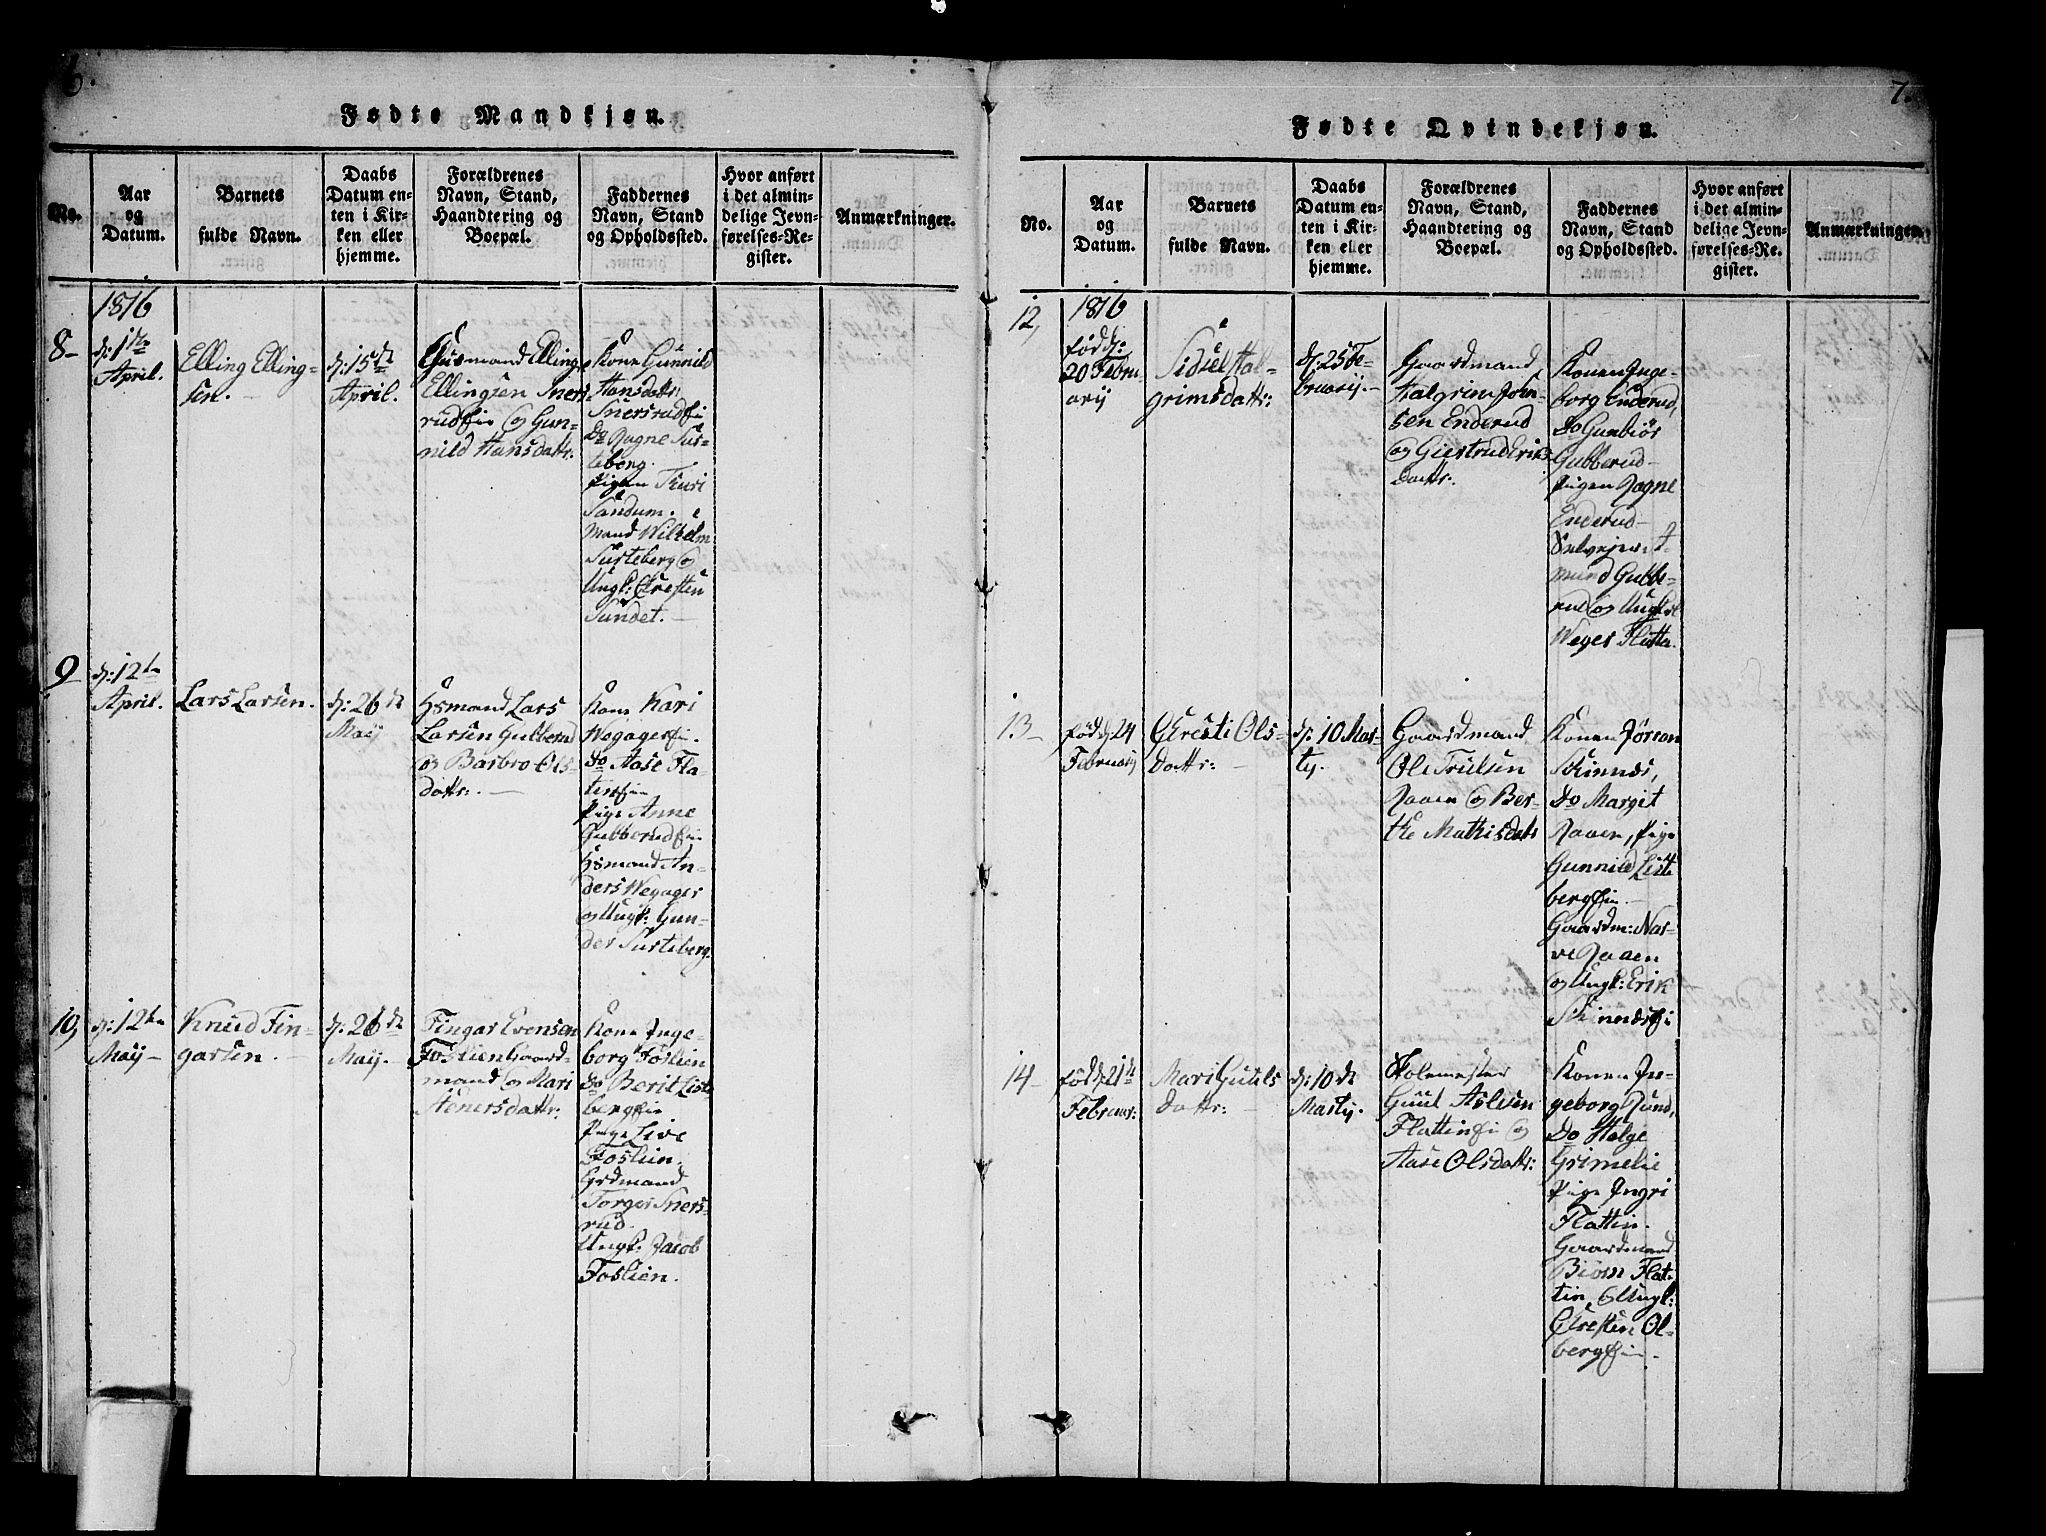 6.
Fødte Mandkjøn.
No.
Aar
og
Datum.
Barnets
fulde Navn.
Daabs
Datum en-
ten i Kir-
ken eller
hjemme.
Forældrenes
Navn, Stand,
Haandtering og
Boepæl.
Faddernes
Navn, Stand
og Opholdssted.
Hvor anført
i det almin-
delige Jevn-
førelses-Re-
gister.
Anmærkninger.
8-
1816
d: 1ste
April.
Elling Elling-
sen.
d: 15de
April.
Huusmand Elling
Ellingsen Sners
rudeie og Gun-
nild Hansdattr:
Kone Gunnild
Hansdattr:
Snersrudei
Do Ragne Sus-
teberg.
Pigen Turi
Sandum.
Mand Wilhelm
Susteberg og
Ungk: Christen
Sundet.
9
d: 12te
April.
Lars Larsen.
d: 26de
Maij
Hsmand Lars
Larsen Gulberud
og Barbro Ols-
dattr.
Kone Kari
Wegagerei.
do Aase Fla-
tineie
Pige Anne
Gubberudei
Hsmand An-
ders Wegager
og Ungk: Gun-
der Susteberg.
10,
d: 12te
Maij-
Knud Fin-
garsen.
d: 26de
Maij.
Fingar Evensen
Foslien Gaard-
mand og Mari
Asnersdattr:
Kone Inge-
borg Foslien
do Berit Liste
bergeie
Pige Live
Foslien.
Grdmand
Torger Sners-
rud.
Ungk: Jacob
Foslien.
7.
Fødte Qvindekjøn.
No.
Aar
og
Datum.
Barnets
fulde Navn.
Daabs
Datum en-
ten i Kir-
ken eller
hjemme.
Forældrenes
Navn, Stand,
Haandtering og
Boepæl.
Faddernes
Navn, Stand
og Opholdssted.
Hvor anført
i det almin-
delige Jevn-
førelses-Re-
gister.
Anmærkninger.
12,
1816
født d:
20 Febru
arij
Sidsel Hal-
grimsdattr:
d: 25 Fe-
bruarij.
Gaardmand
Halgrim John-
sen Enderud
og Giertrud Eriks
dattr:
Konen Inge-
borg Enderud,
Do Gunbiør
Gubberud-
Pigen Ragne
Enderud-
Selvejer
mund Gubbe-
rud og Ungkl
Weger Flatta.
13-
født d 24
Februarij
Christi Ols-
dattr:
d: 10 Mar-
tij.
Gaardmand
Ole Trulsen
Raaen og Ber-
the Mathisdatr
Konen Jøran
Skinnes,
Do Margit
Raaen, Pige
Gunnild Liste
bergeie.
Gaardm: Nar-
ve Raaen
og Ungk: Erik
Skinnesei
14-
født d 21de
Februar:
Mari Guuls
dattr:
d: 10de
Martij.
Skolemester
Guul Aslesen
Flattinei og
Aase Olsdattr:
Konen In-
geborg Rund,
Do Helge
Grimelie
Pige Ingri
Flattin.
Gaardmand
Biørn Flat-
tin og Ungk:
Christen Ol-
bergeie.